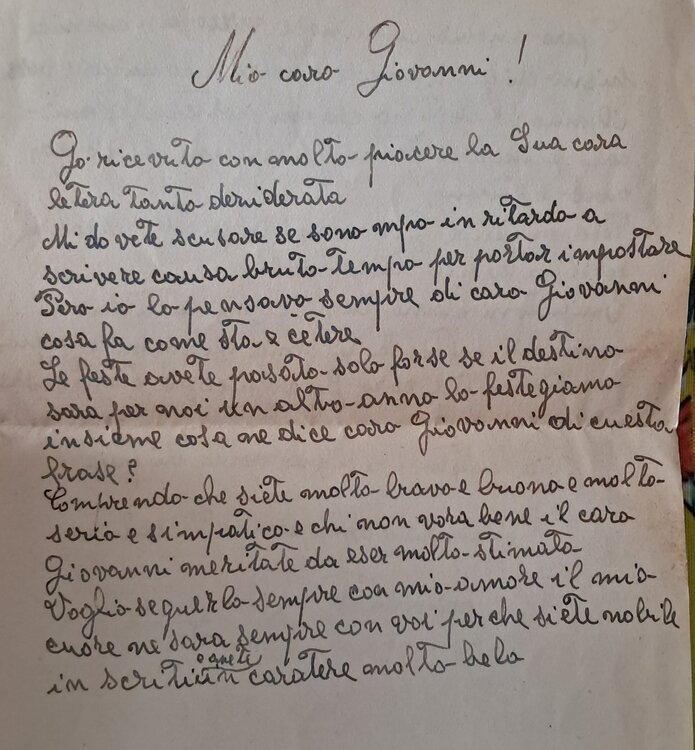 Mio caro Giovanni!
Go ricevuto con molto piacere la Sua cara
letera tanto desiderata
Mi dovete scusare se sono mpo in ritardo a
scrivere causa bruto tempo per portar impostare
Pero io lo pensavo sempre di caro Giovanni
cosa fa come sta e cetere
Le feste avete pasato solo forse se il destino
sara per noi un altro anno lo festegiamo
insieme cosa ne dice caro Giovanni di cuesta
frase?
Comprendo che siete molto bravo e buono e molto
serio e simpatico e chi non vora bene il caro
Giovanni meritate da eser molto stimato
Voglio seguerlo sempre con mio amore il mio
cuore ne sara sempre con voi perche siete nobile
in scriti caratere molto belo